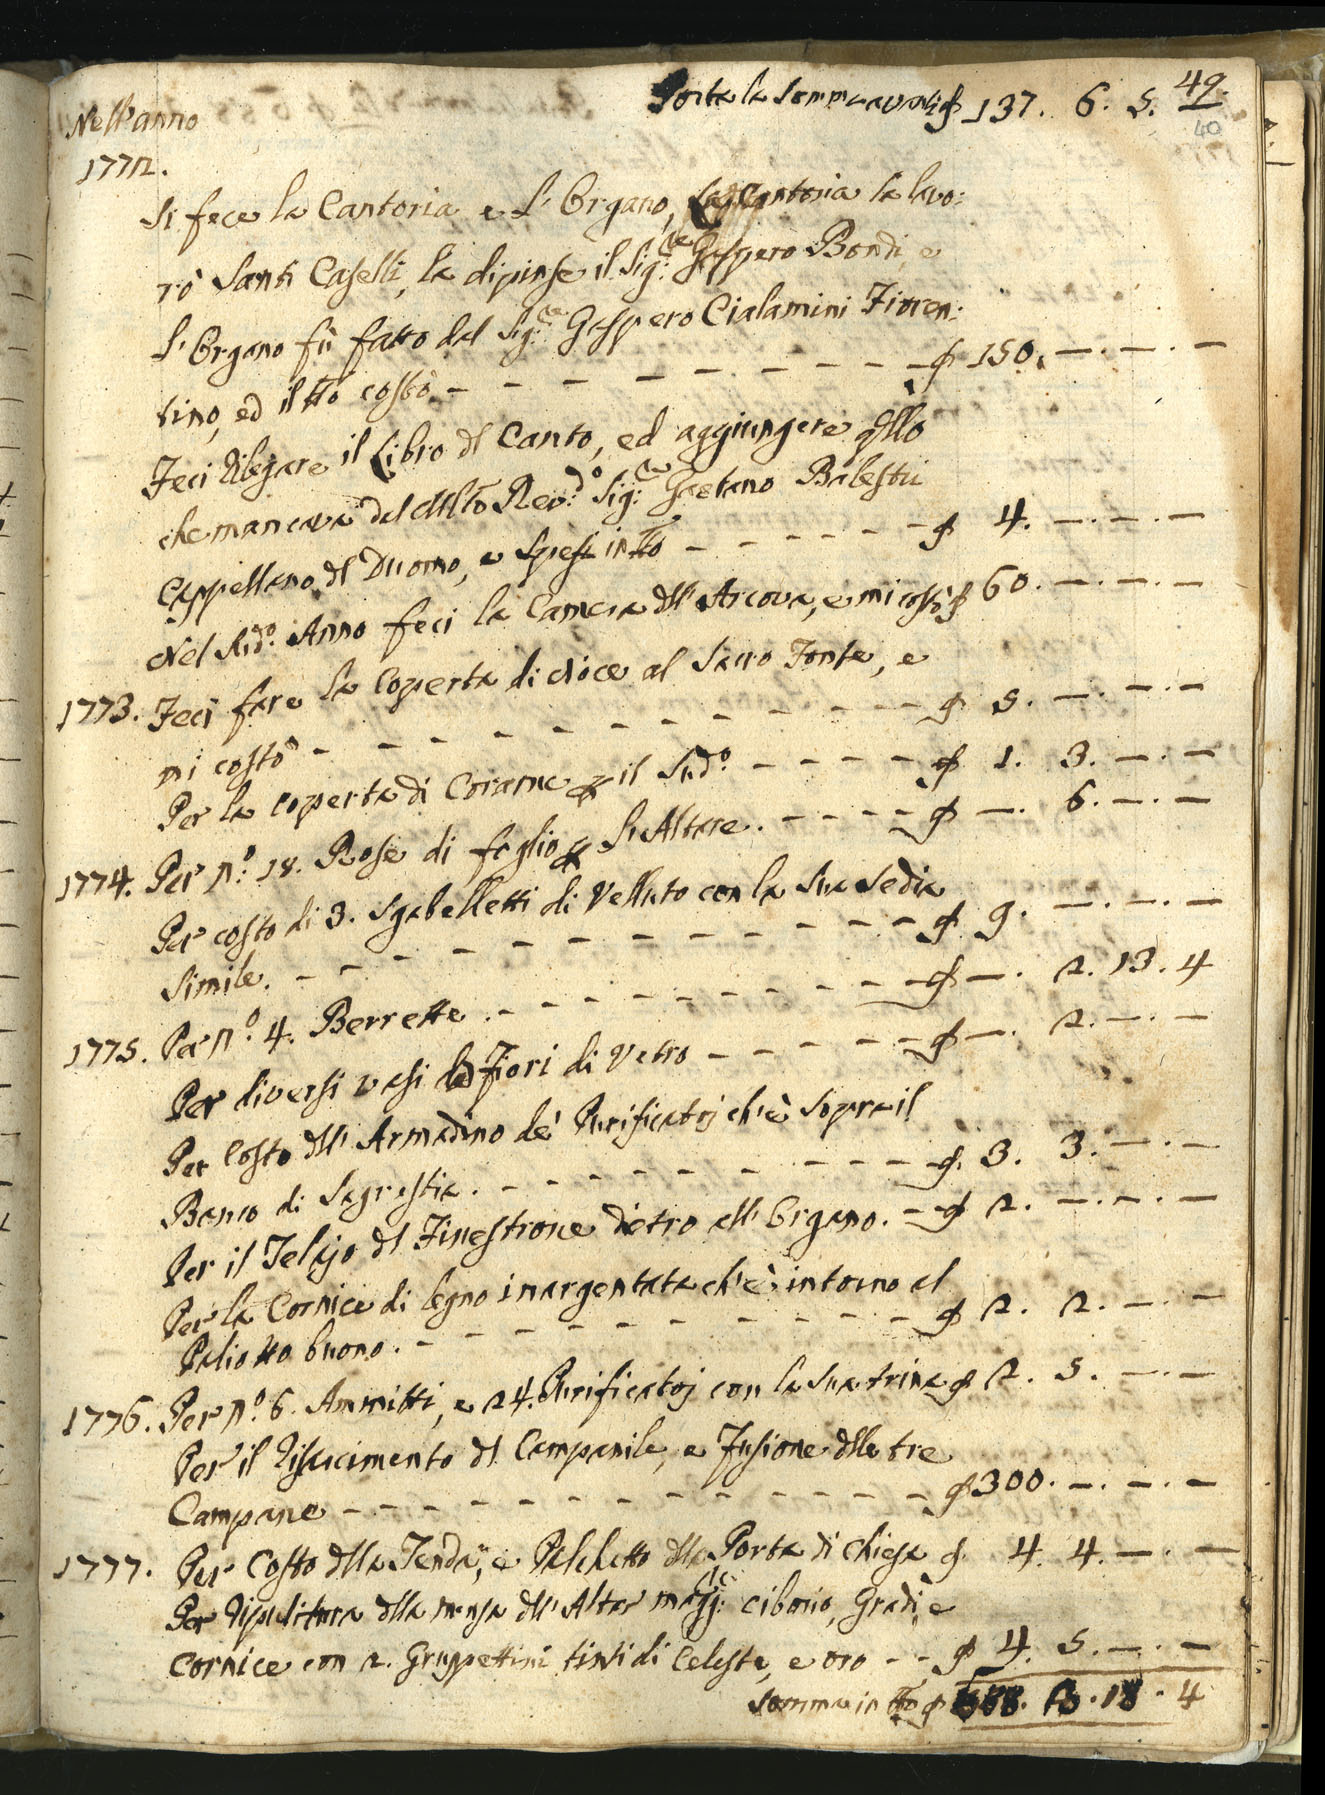 49.
40
Porta la Somma avanti ₰ 137. 6. 5.
Nell'anno
1772.
Si fece la Cantoria e L'Organo, la Cantoria la lavo:
rò Santi Caselli, la dipinse il Sig:re Gaspero Bondi, e
L'Organo fù fatto dal Sig:re Gaspero Cialamini Fioren:
tino, ed il tto costò - - - - - - - - - ₰ 150. —. —. —
Feci rilegare il Libro dl Canto, ed aggiungere qllo
che mancava dal Mlto Rev:do Sig:re Gaetano Balestri
Cappellano dl Duomo, e spesi in tto - - - - - - ₰ 4. —. —. —
Nel Sudo. Anno feci la Camera dll'Arcova, e mi costò ₰ 60. —. —. —
1773. Feci fare la Coperta di Noce al Sacro Fonte, e
mi costò - - - - - - - - - - ₰ 5. —. —. —
Per la coperta di Corame p il Sudo. - - - - - ₰ 1. 3. —. —
1774. Per No. 18. Rose di foglio p L'Altare. - - - - - ₰ —. 6. —. —
Per costo di 3. Sgabelletti di Velluto con la sua Sedia
Simile. - - - - - - - - - - - - ₰ 9. —. —. —
1775. Per No. 4. Berrette. - - - - - - - - ₰ —. 2. 13. 4
Per diversi vasi da Fiori di Vetro - - - - - ₰ —. 2. —. —
Per Costo dll'Armadino de' Purificatoj ch'è sopra il
Banco di Sagrestia. - - - - - - - - - ₰ 3. 3. —. —
Per il Telajo dl Finestrone dietro all'Organo. - ₰ 2. —. —. —
Per la Cornice di legno inargentata ch'è intorno al
Paliotto buono. - - - - - - - - - - ₰ 2. 2. —. —
1776. Per No. 6. Ammitti, e 24. Purificatoj con la sua trina ₰ 2. 5. —. —
Per il Risarcimento dl Campanile, e Fusione dlle tre
Campane - - - - - - - - - - - - ₰ 300. —. —. —
1777. Per Costo dlla Tenda, e Palchetto dlla Porta di Chiesa ₰ 4. 4. —. —
Per Ripulitura dlla mensa dll'Altar magg:re ciborio, Gradi, e
Cornice con 2. Gruppettini tinti di Celeste, e oro - - ₰ 4. 5. —. —
Somma in tto ₰ 18. 4